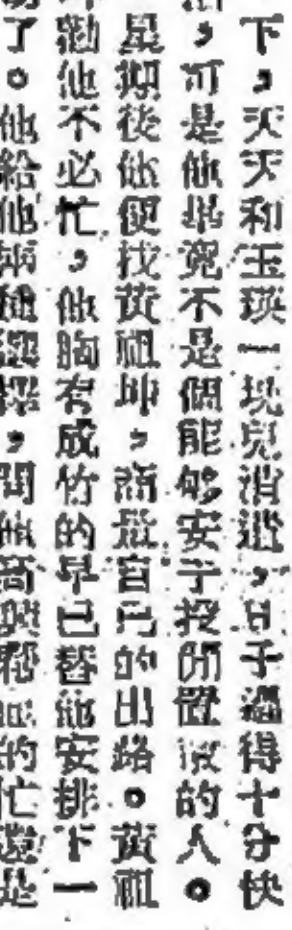 下，天天和玉瑛一塊兒消遣，日子過得十分快
，可是他畢竟不是個能够安于投閒置散的人。
星期後他便找黃祖坤，商量自己的出路。黃祖
勸他不必忙，他胸有成竹的早已替他安排下一
了。他給他兩種選擇，問他高興幫他的忙還是